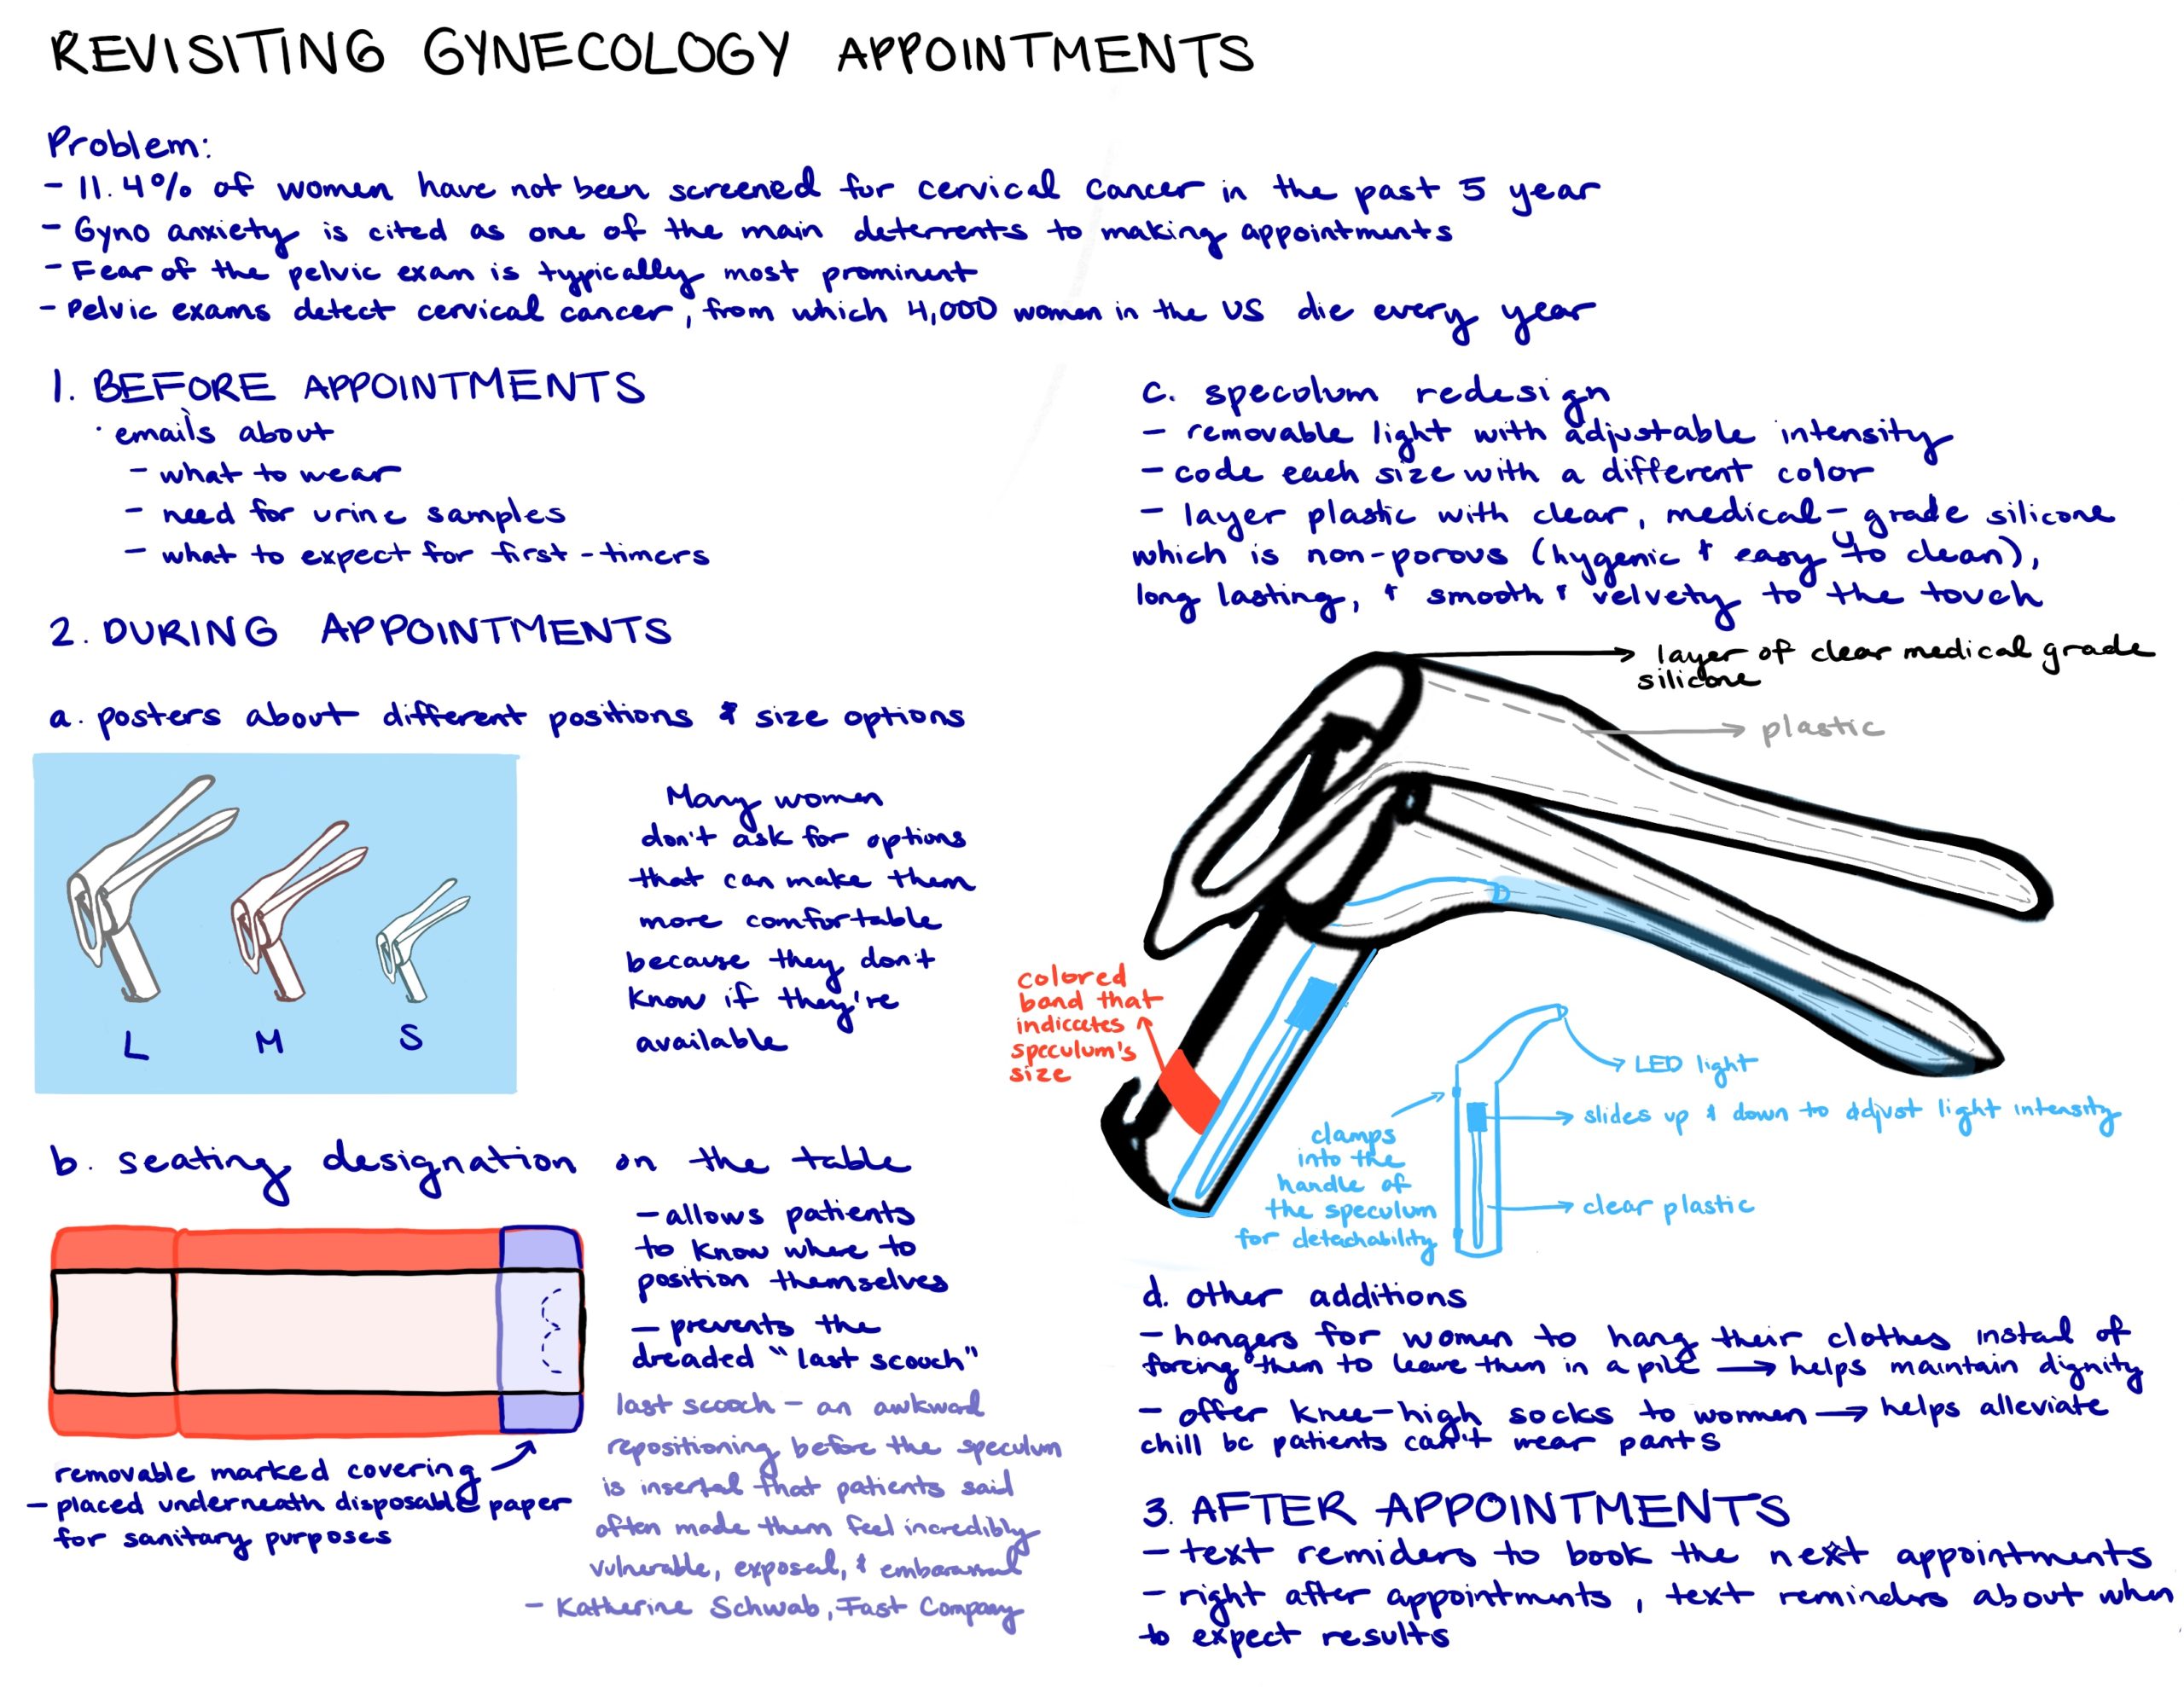 REVISITING GYNECOLOGY APPOINTMENTS
Problem:
- 11.4% of women have not been screened for cervical cancer in the past 5 year
- Gyno anxiety is cited as one of the main deterrents to making appointments
- Fear of the pelvic exam is typically most prominent
- Pelvic exams detect cervical cancer, from which 4,000 women in the US die every year
1. BEFORE APPOINTMENTS
· emails about
- what to wear
- need for urine samples
- what to expect for first-timers
2. DURING APPOINTMENTS
a. posters about different positions & size options
L M S
Many women
don't ask for options
that can make them
more comfortable
because they don't
know if they're
available
b. seating designation on the table
- allows patients
to know where to
position themselves
- prevents the
dreaded "last scooch"
last scooch - an awkward
repositioning before the speculum
is inserted that patients said
often made them feel incredibly
vulnerable, exposed, & embarassed
- Katherine Schwab, Fast Company
removable marked covering
- placed underneath disposable paper
for sanitary purposes
c. specolum redesign
- removable light with adjustable intensity
- code each size with a different color
- layer plastic with clear, medical-grade silicone
which is non-porous (hygenic & easy to clean),
long lasting, & smooth & velvety to the touch
layer of clear medical grade
silicone
plastic
colored
band that
indiccates
speculum's
size
LED light
slides up & down to adjust light intensity
clamps
into the
handle of
the speculum
for detachability
clear plastic
d. other additions
- hangers for women to hang their clothes instead of
forcing them to leave them in a pile → helps maintain dignity
- offer knee-high socks to women → helps alleviate
chill bc patients can't wear pants
3. AFTER APPOINTMENTS
- text remiders to book the next appointments
- right after appointments, text reminders about when
to expect results